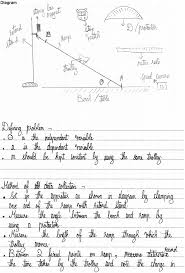 Diagram
retort
stand
ramp
D / protractor
metre rule
Bench / table
Defining problem :-
• θ is the independent variable
• a is the dependent variable
• m should be kept constant by using the same trolley
Method of data collection :-
• Set up the apparatus as shown in diagram by clamping
one end of the ramp with retort stand
• Measure the angle between the bench and ramp by
using a protractor
• Measure the length of the ramp through which the
trolley moves
• Between 2 fixed points on ramp, measure
the time taken by the trolley and note the change in